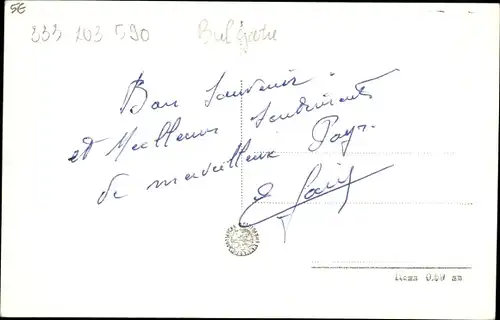 5€
333 103 590 Bulgarie
Bon Souvenir
et Meilleurs Sentiments
de merveilleux Pays.
Цена 0.09 лв